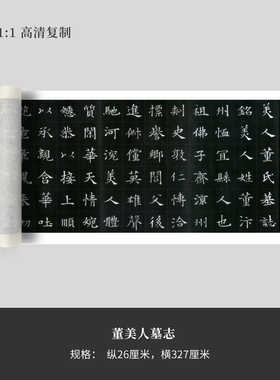 1:1 高清复制
美人董氏墓誌
銘美人姓董汴
州恤宜縣人也
祖佛子齊涼州
刾史敦仁博洽
標譽鄉閭父後
進俶儻英雄聲
馳河渷美人體
質閑華天情婉
嫕恭以接上順
以承親含華吐
董美人墓志
规格： 纵26厘米，横327厘米